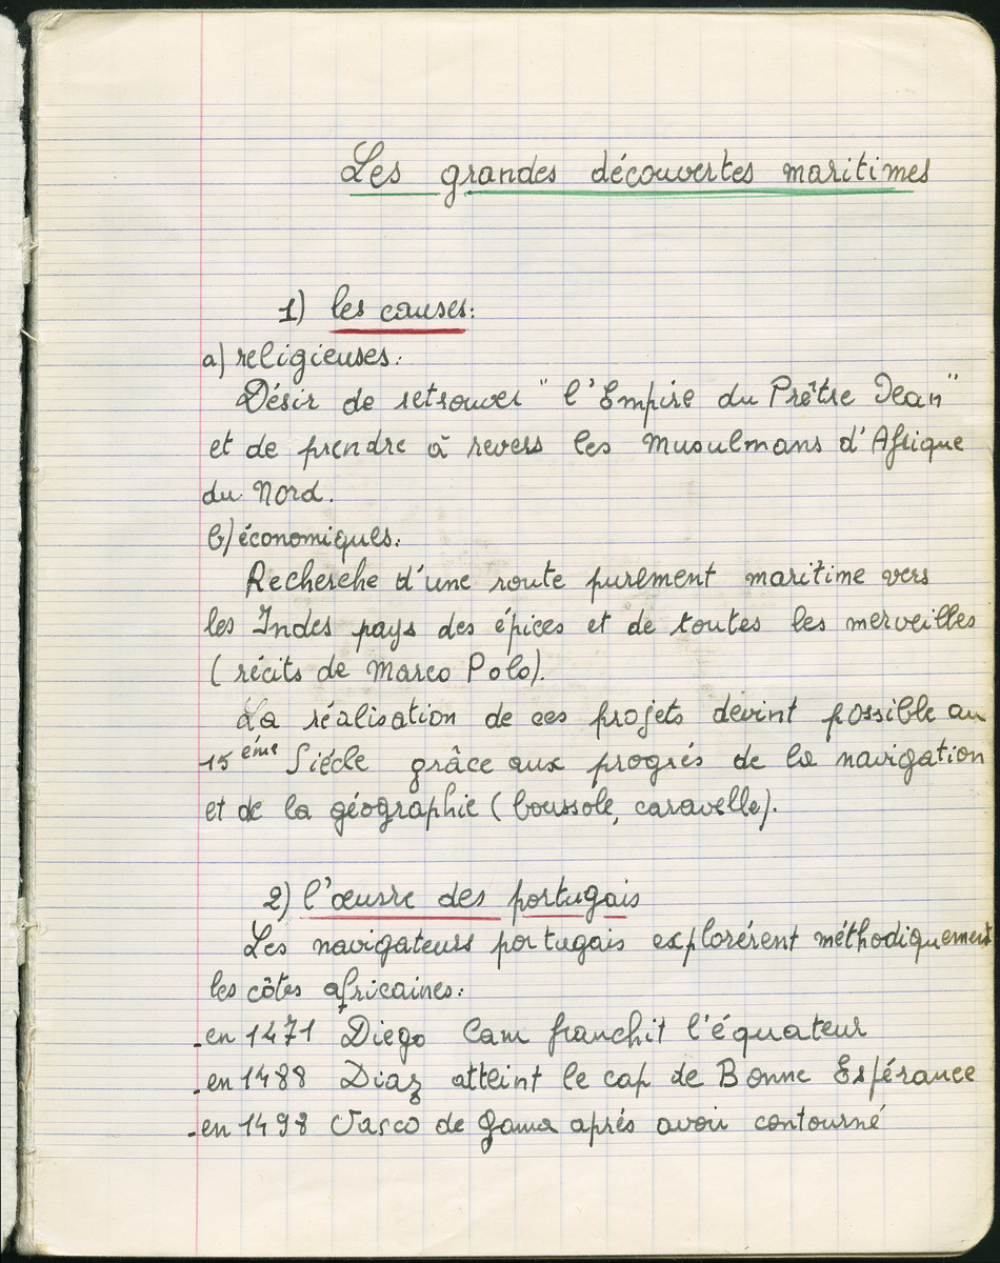 Les grandes découvertes maritimes
1) les causes:
a) religieuses:
Désir de retrouver "l'Empire du Prêtre Jean"
et de prendre à revers les Musulmans d'Afrique
du Nord.
b) économiques:
Recherche d'une route purement maritime vers
les Indes pays des épices et de toutes les merveilles
(récits de Marco Polo).
La réalisation de ces projets devint possible au
15ème Siécle grâce aux progrés de la navigation
et de la géographie (boussole, caravelle).
2) l'œuvre des portugais
Les navigateurs portugais explorérent méthodiquement
les côtes africaines:
-en 1471 Diego Cam franchit l'équateur
-en 1488 Diaz atteint le cap de Bonne Espérance
-en 1498 Vasco de Gama aprés avoir contourné